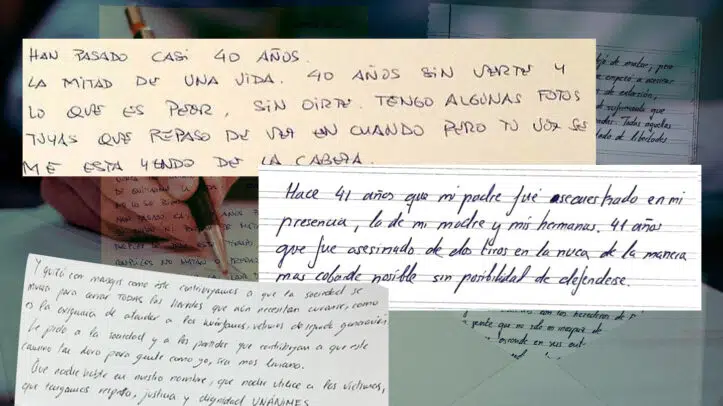 HAN PASADO CASI 40 AÑOS.
LA MITAD DE UNA VIDA. 40 AÑOS SIN VERTE Y
LO QUE ES PEOR, SIN OIRTE. TENGO ALGUNAS FOTOS
TUYAS QUE REPASO DE VEZ EN CUANDO PERO TU VOZ SE
ME ESTA YENDO DE LA CABEZA.
Hace 41 años que mi padre fue secuestrado en mi
presencia, la de mi madre y mis hermanas. 41 años
que fue asesinado de dos tiros en la nuca de la manera
mas cobarde posible sin posibilidad de defenderse.
Y quizá con mensajes como éste contribuyamos a que la sociedad se
mueva para cerrar TODAS las heridas que aún necesitan curarse, como
es la exigencia de atender a los huérfanos, víctimas de segunda generación.
Le pido a la sociedad y a los partidos que contribuyan a que este
camino tan duro para gente como yo, sea más liviano.
Que nadie hable en nuestro nombre, que nadie utilice a las víctimas,
que tengamos respeto, justicia y dignidad UNÁNIMES
dejó de matar, pero
empezó a asesinar
de extorsión,
sufrimiento que
Todas aquellas
de libertades
con los herederos de
gente que ni sólo ni
esconde en sus